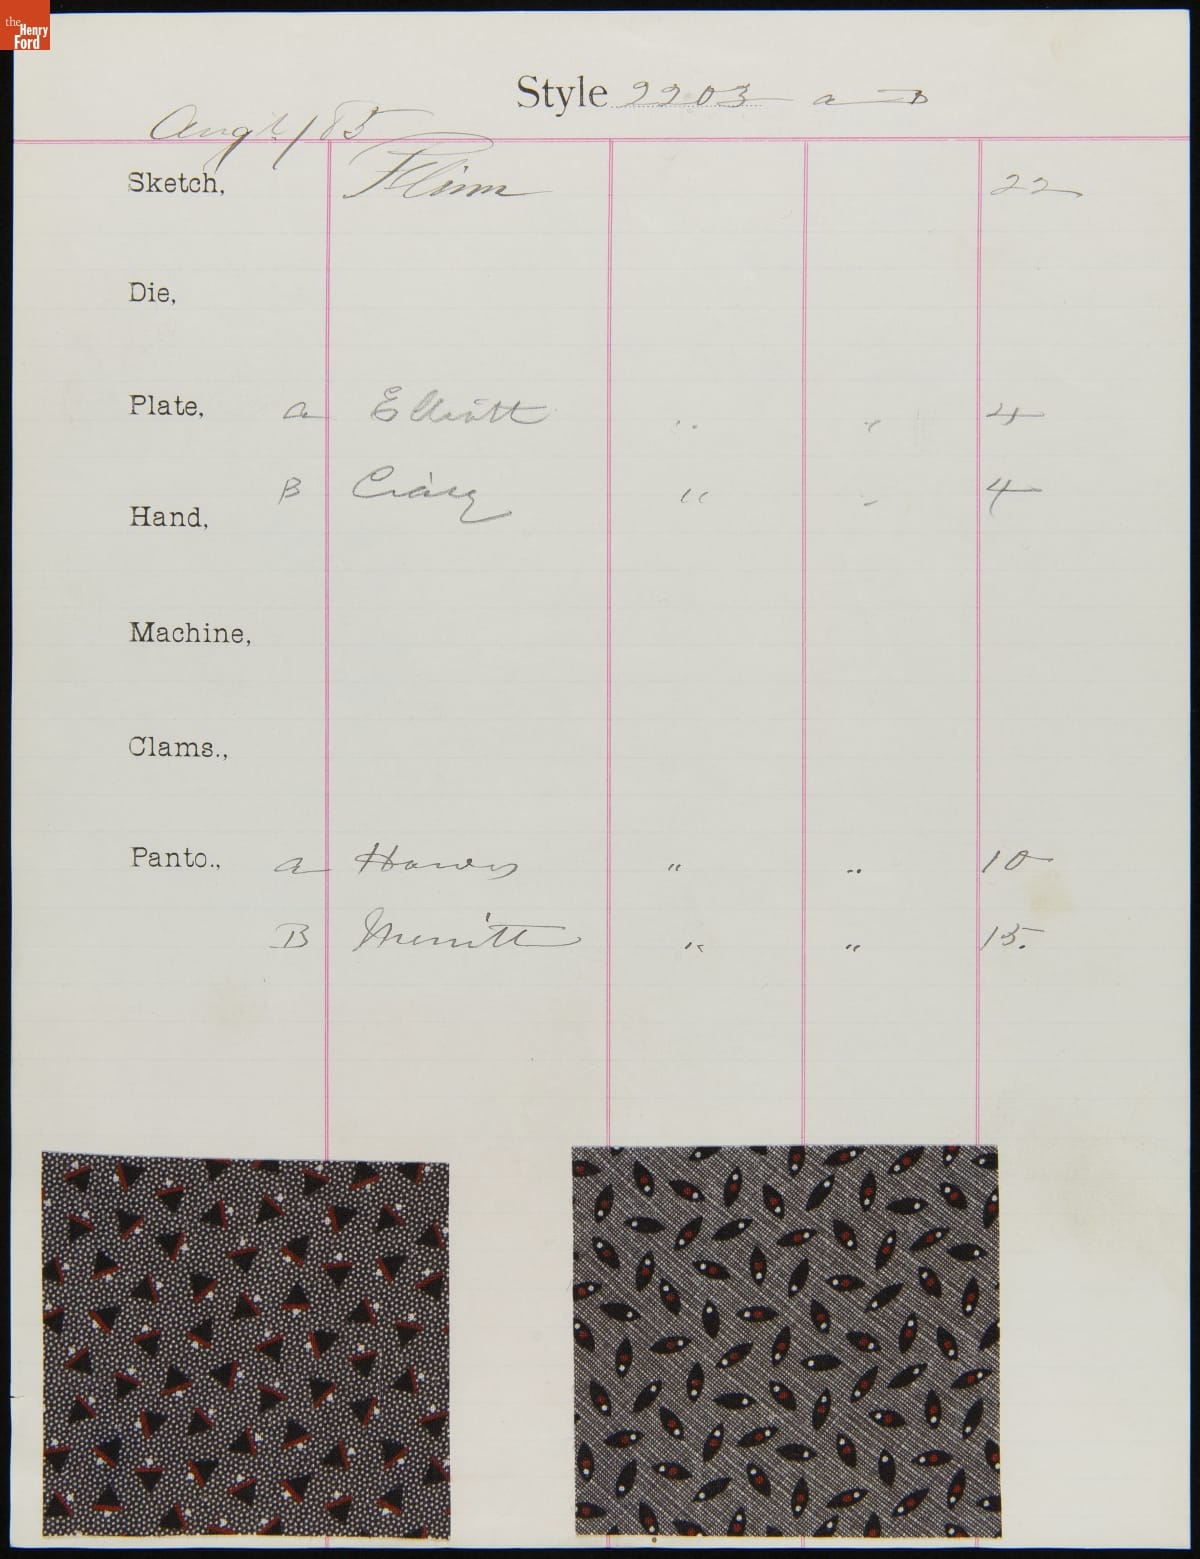 the Henry Ford
Style 2203 a B
Aug 1/85
Sketch, Flinn 22
Die,
Plate, a Elliott " " 4
B Craig " " 4
Hand,
Machine,
Clams.,
Panto., a Hawes " " 10
B Merritt " " 15.